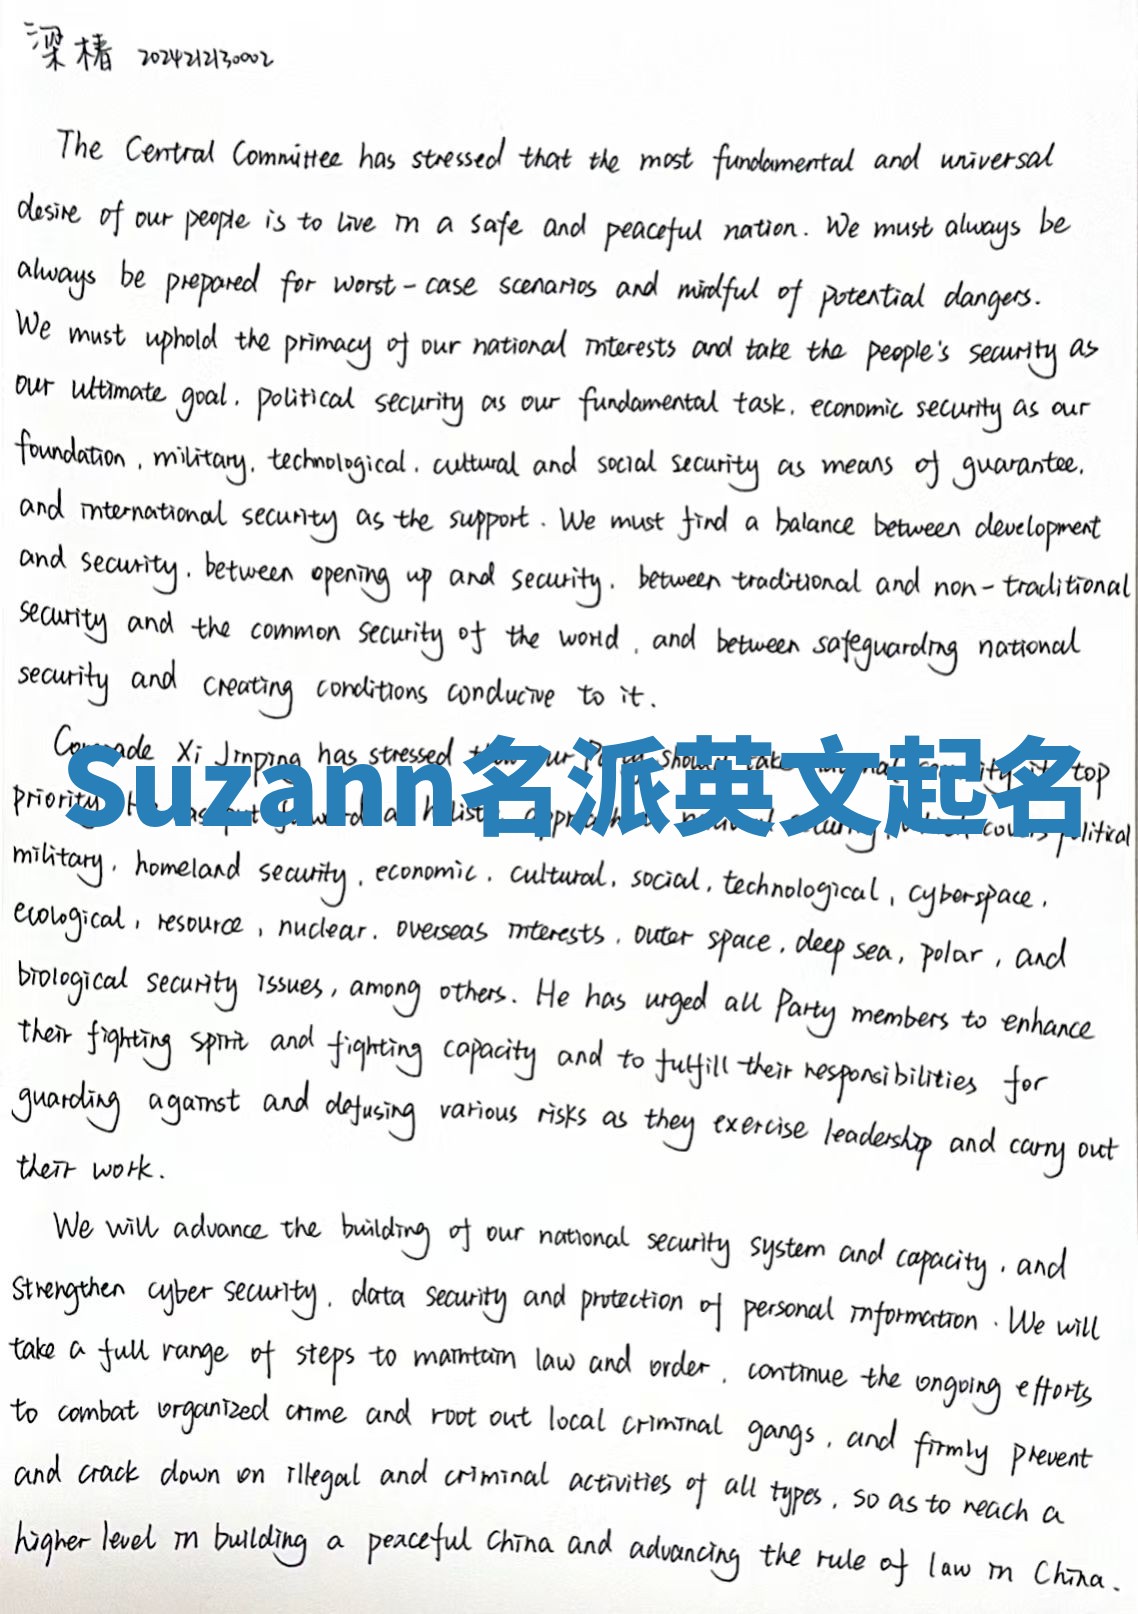 梁椿 2024212130002
The Central Committee has stressed that the most fundamental and universal
desire of our people is to live in a safe and peaceful nation. We must always be
always be prepared for worst-case scenarios and mindful of potential dangers.
We must uphold the primacy of our national interests and take the people's security as
our ultimate goal, political security as our fundamental task, economic security as our
foundation, military, technological, cultural and social security as means of guarantee,
and international security as the support. We must find a balance between development
and security, between opening up and security, between traditional and non-traditional
security and the common security of the world, and between safeguarding national
security and creating conditions conducive to it.
Comrade Xi Jinping has stressed our take top
Suzann名派英文起名
priority political
military, homeland security, economic, cultural, social, technological, cyberspace,
ecological, resource, nuclear, overseas interests, outer space, deep sea, polar, and
biological security issues, among others. He has urged all Party members to enhance
their fighting spirit and fighting capacity and to fulfill their responsibilities for
guarding against and defusing various risks as they exercise leadership and carry out
their work.
We will advance the building of our national security system and capacity, and
strengthen cyber security, data security and protection of personal information. We will
take a full range of steps to maintain law and order, continue the ongoing efforts
to combat organized crime and root out local criminal gangs, and firmly prevent
and crack down on illegal and criminal activities of all types, so as to reach a
higher level in building a peaceful China and advancing the rule of law in China.